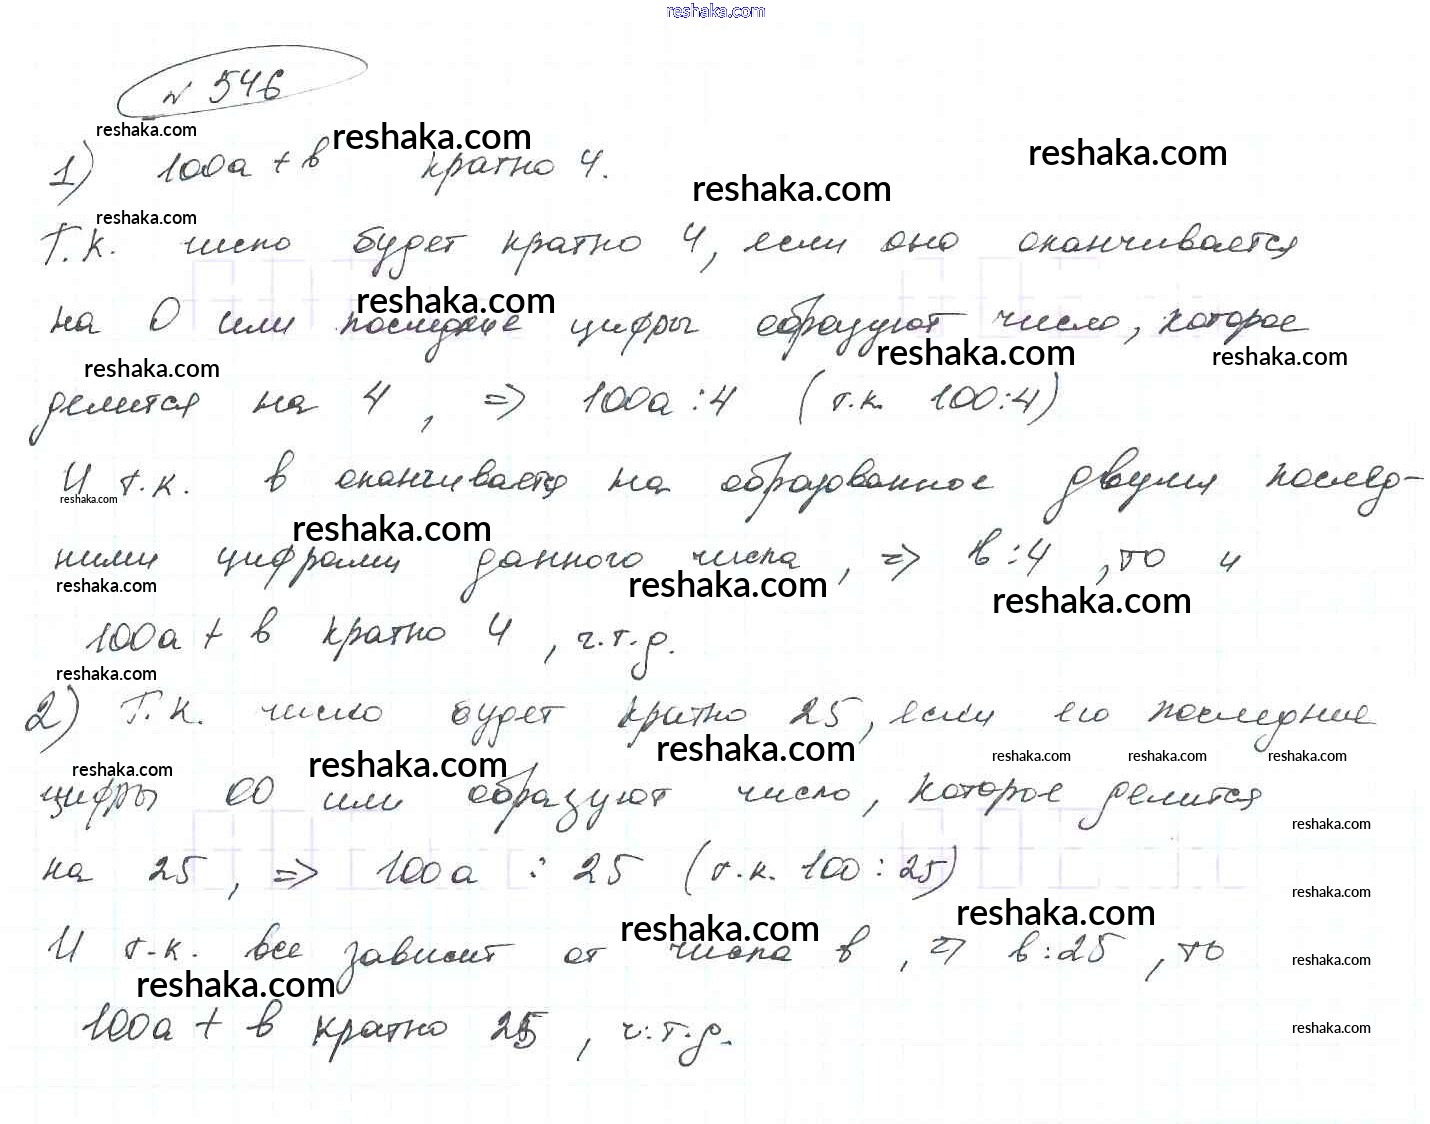 reshaka.com
№ 546
reshaka.com reshaka.com reshaka.com
1) 100а + в кратно 4.
reshaka.com
reshaka.com
Т.к. число будет кратно 4, если оно оканчивается
reshaka.com
на 0 или последние цифры образуют число, которое
reshaka.com reshaka.com reshaka.com
делится на 4, => 100а : 4 (т.к. 100:4)
И т.к. в оканчивается на образованное двумя послед-
reshaka.com
reshaka.com
ними цифрами данного числа, => в:4, то и
reshaka.com reshaka.com reshaka.com
100а + в кратно 4, ч.т.д.
reshaka.com
2) Т.к. число будет кратно 25, если его последние
reshaka.com reshaka.com reshaka.com reshaka.com
reshaka.com reshaka.com
цифры 00 или образуют число, которое делится
reshaka.com
на 25, => 100а : 25 (т.к. 100 : 25)
reshaka.com
reshaka.com reshaka.com
И т.к. все зависит от числа в, => в:25, то
reshaka.com
reshaka.com
100а + в кратно 25, ч.т.д.
reshaka.com